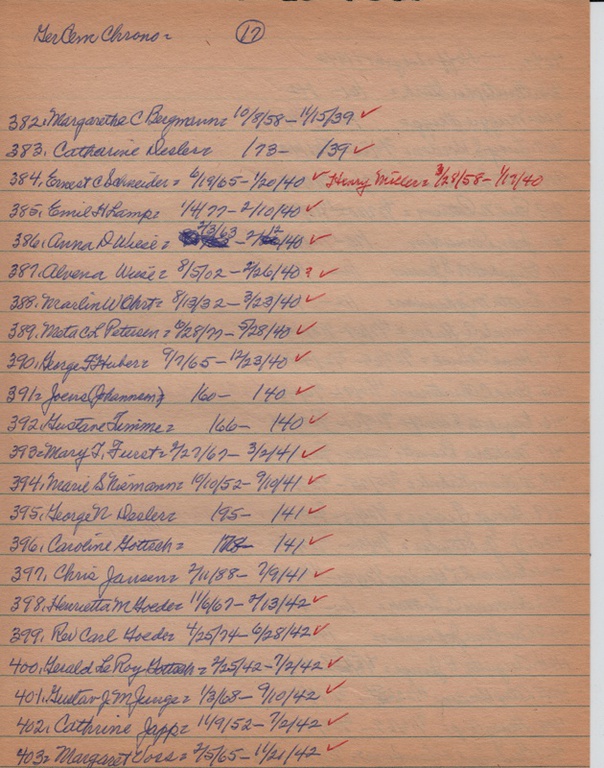 GerCem Chrono = 17
382. Margaretha C Bergmann = 10/8/58 – 11/15/39 ✓
383. Catharine Desler = /73 – /39 ✓
384. Ernest C Schneider = 6/19/65 – 1/20/40 ✓ Henry Miller = 3/28/58 – 1/17/40
385. Emil H Lamp = 1/4/77 – 2/10/40 ✓
386. Anna D Wiese = 2/3/63 – 2/12/40 ✓
387. Alvena Wiese = 8/5/02 – 2/26/40 ? ✓
388. Marlin W Ohrt = 8/13/32 – 3/23/40 ✓
389. Meta C L Petersen = 6/28/77 – 5/28/40 ✓
390. George F Huber = 9/7/65 – 12/23/40 ✓
391 = Joens Johannsen = 160 – 140 ✓
392. Gustave Timme = 166 – 140 ✓
393 = Mary T. Furst = 2/27/67 – 3/2/41 ✓
394. Marie S Niemann = 10/10/52 – 9/10/41 ✓
395. George N Desler = 195 – 141 ✓
396. Caroline Gottsch = – 141 ✓
397. Chris Jansen = 2/11/88 – 7/9/41 ✓
398. Henrietta M Goeder = 11/6/67 – 2/13/42 ✓
399. Rev Carl Goeder = 4/25/74 – 6/28/42 ✓
400. Gerald Le Roy Gottsch = 2/25/42 – 7/2/42 ✓
401. Gustav J. M Junge = 1/3/68 – 9/10/42 ✓
402. Cathrine Japp = 11/9/52 – 7/2/42 ✓
403 = Margaret Voss = 2/5/65 – 11/21/42 ✓